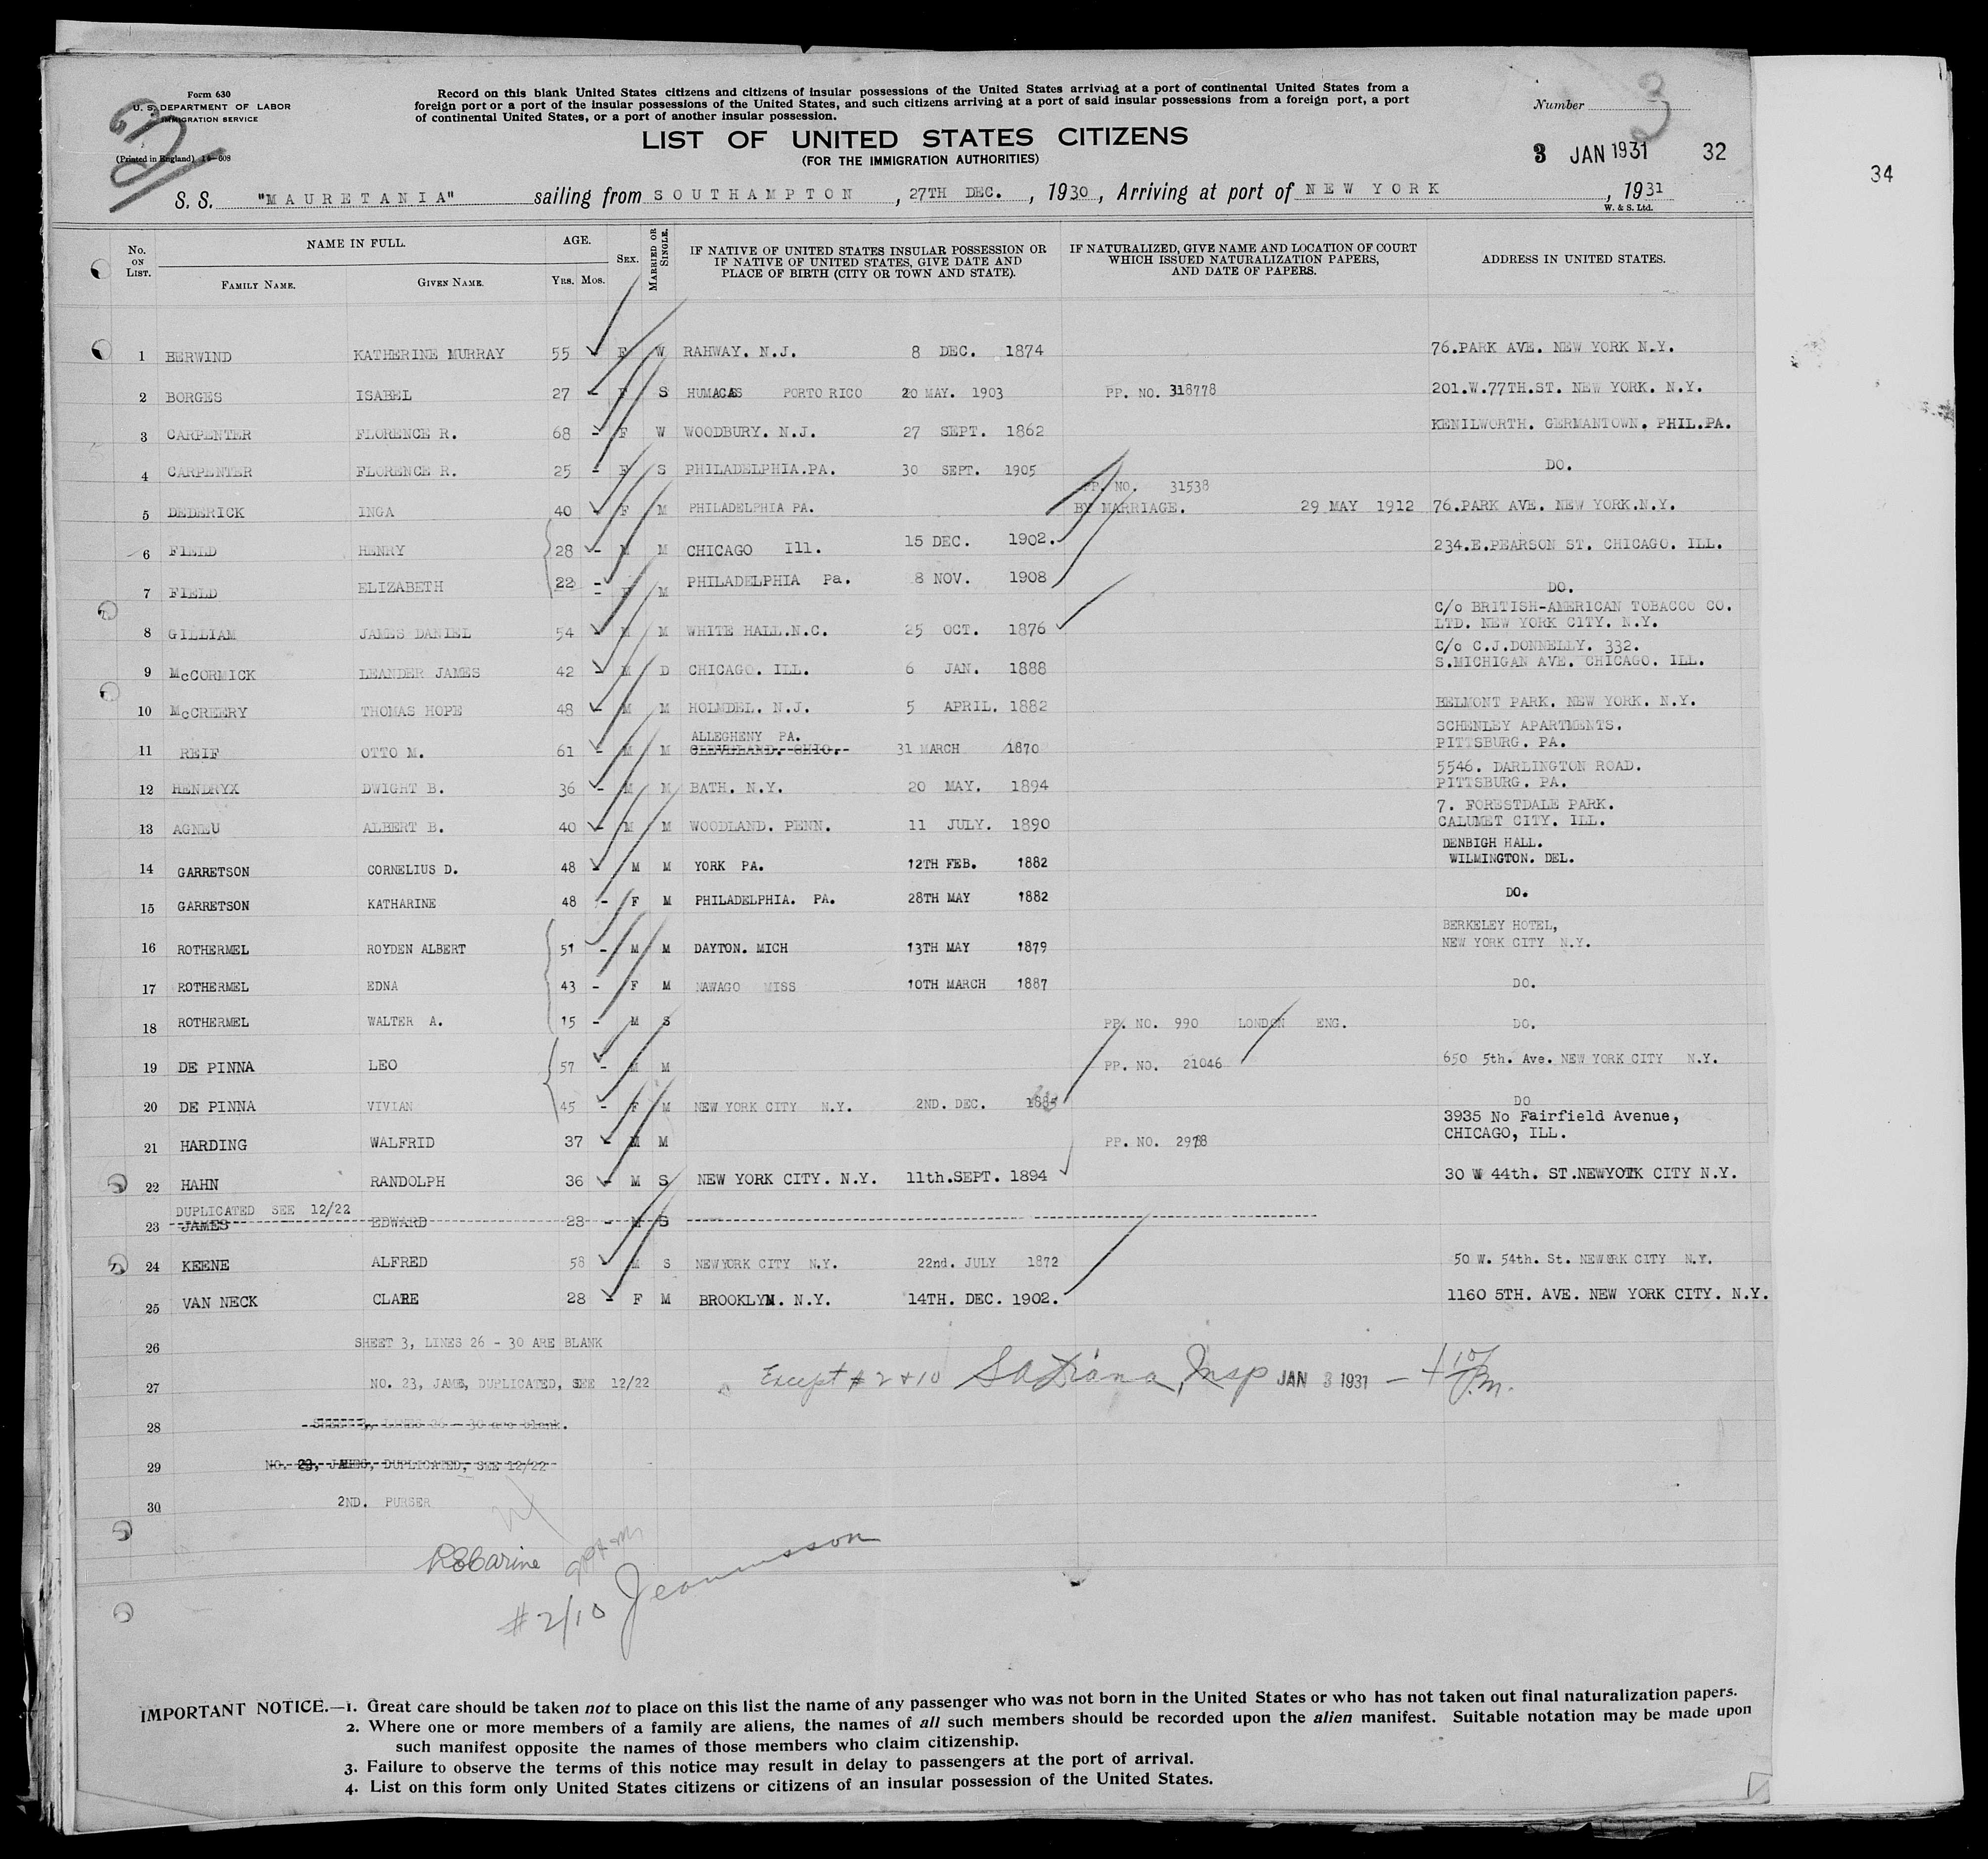 Form 630
U. S. DEPARTMENT OF LABOR
IMMIGRATION SERVICE
(Printed in England) 14—608
Record on this blank United States citizens and citizens of insular possessions of the United States arriving at a port of continental United States from a
foreign port or a port of the insular possessions of the United States, and such citizens arriving at a port of said insular possessions from a foreign port, a port
of continental United States, or a port of another insular possession.
LIST OF UNITED STATES CITIZENS
(FOR THE IMMIGRATION AUTHORITIES)
Number 3
3 JAN 1931 32
34
S. S. "MAURETANIA" sailing from SOUTHAMPTON, 27TH DEC., 1930, Arriving at port of NEW YORK, 1931
W. & S. Ltd.
No. ON LIST. NAME IN FULL. FAMILY NAME. GIVEN NAME. AGE. YRS. MOS. SEX. MARRIED OR SINGLE. IF NATIVE OF UNITED STATES INSULAR POSSESSION OR IF NATIVE OF UNITED STATES, GIVE DATE AND PLACE OF BIRTH (CITY OR TOWN AND STATE). IF NATURALIZED, GIVE NAME AND LOCATION OF COURT WHICH ISSUED NATURALIZATION PAPERS, AND DATE OF PAPERS. ADDRESS IN UNITED STATES.
1 BERWIND KATHERINE MURRAY 55 F W RAHWAY. N.J. 8 DEC. 1874 76.PARK AVE. NEW YORK N.Y.
2 BORGES ISABEL 27 - F S HUMACAS PORTO RICO 20 MAY. 1903 PP. NO. 318778 201.W.77TH.ST. NEW YORK. N.Y.
3 CARPENTER FLORENCE R. 68 - F W WOODBURY. N.J. 27 SEPT. 1862 KENILWORTH. GERMANTOWN. PHIL.PA.
4 CARPENTER FLORENCE R. 25 - F S PHILADELPHIA.PA. 30 SEPT. 1905 DO.
PP. NO. 31538
5 DEDERICK INGA 40 - F M PHILADELPHIA PA. BY MARRIAGE. 29 MAY 1912 76.PARK AVE. NEW YORK.N.Y.
6 FIELD HENRY 28 - M M CHICAGO Ill. 15 DEC. 1902. 234.E.PEARSON ST. CHICAGO. ILL.
7 FIELD ELIZABETH 22 - F M PHILADELPHIA Pa. 8 NOV. 1908 DO.
C/o BRITISH-AMERICAN TOBACCO CO.
8 GILLIAM JAMES DANIEL 54 - M M WHITE HALL.N.C. 25 OCT. 1876 LTD. NEW YORK CITY. N.Y.
C/o C.J.DONNELLY. 332.
9 McCORMICK LEANDER JAMES 42 - M D CHICAGO. ILL. 6 JAN. 1888 S.MICHIGAN AVE. CHICAGO. ILL.
10 McCREERY THOMAS HOPE 48 - M M HOLMDEL. N.J. 5 APRIL. 1882 BELMONT PARK. NEW YORK. N.Y.
ALLEGHENY PA. SCHENLEY APARTMENTS.
11 REIF OTTO M. 61 - M M CLEVELAND. OHIO. 31 MARCH 1870 PITTSBURG. PA.
5546. DARLINGTON ROAD.
12 HENDRYX DWIGHT B. 36 - M M BATH. N.Y. 20 MAY. 1894 PITTSBURG. PA.
7. FORESTDALE PARK.
13 AGNEU ALBERT B. 40 - M M WOODLAND. PENN. 11 JULY. 1890 CALUMET CITY. ILL.
DENBIGH HALL.
14 GARRETSON CORNELIUS D. 48 - M M YORK PA. 12TH FEB. 1882 WILMINGTON. DEL.
15 GARRETSON KATHARINE 48 - F M PHILADELPHIA. PA. 28TH MAY 1882 DO.
BERKELEY HOTEL,
16 ROTHERMEL ROYDEN ALBERT 51 - M M DAYTON. MICH 13TH MAY 1879 NEW YORK CITY N.Y.
17 ROTHERMEL EDNA 43 - F M NAWAGO MISS 10TH MARCH 1887 DO.
18 ROTHERMEL WALTER A. 15 - M S PP. NO. 990 LONDON ENG. DO.
19 DE PINNA LEO 57 - M M PP. NO. 21046 650 5th. Ave. NEW YORK CITY N.Y.
20 DE PINNA VIVIAN 45 - F M NEW YORK CITY N.Y. 2ND. DEC. DO
3935 No Fairfield Avenue,
21 HARDING WALFRID 37 - M M PP. NO. 2978 CHICAGO, ILL.
22 HAHN RANDOLPH 36 - M S NEW YORK CITY. N.Y. 11th.SEPT. 1894 30 W 44th. ST.NEWYOTK CITY N.Y.
DUPLICATED SEE 12/22
23 JAMES EDWARD 28 - M S
24 KEENE ALFRED 58 M S NEWYORK CITY N.Y. 22nd. JULY 1872 50 W. 54th. St. NEWORK CITY N.Y.
25 VAN NECK CLARE 28 - F M BROOKLYN. N.Y. 14TH. DEC. 1902. 1160 5TH. AVE. NEW YORK CITY. N.Y.
26 SHEET 3, LINES 26 - 30 ARE BLANK
27 NO. 23, JAME, DUPLICATED, SEE 12/22 Except # 2 + 10 Insp JAN 3 1931 —
28 SHEET 3, LINES 26 - 30 are blank.
29 NO. 23, JAMES, DUPLICATED, SEE 12/22
30 2ND. PURSER
#2/10
IMPORTANT NOTICE.—1. Great care should be taken not to place on this list the name of any passenger who was not born in the United States or who has not taken out final naturalization papers.
2. Where one or more members of a family are aliens, the names of all such members should be recorded upon the alien manifest. Suitable notation may be made upon
such manifest opposite the names of those members who claim citizenship.
3. Failure to observe the terms of this notice may result in delay to passengers at the port of arrival.
4. List on this form only United States citizens or citizens of an insular possession of the United States.